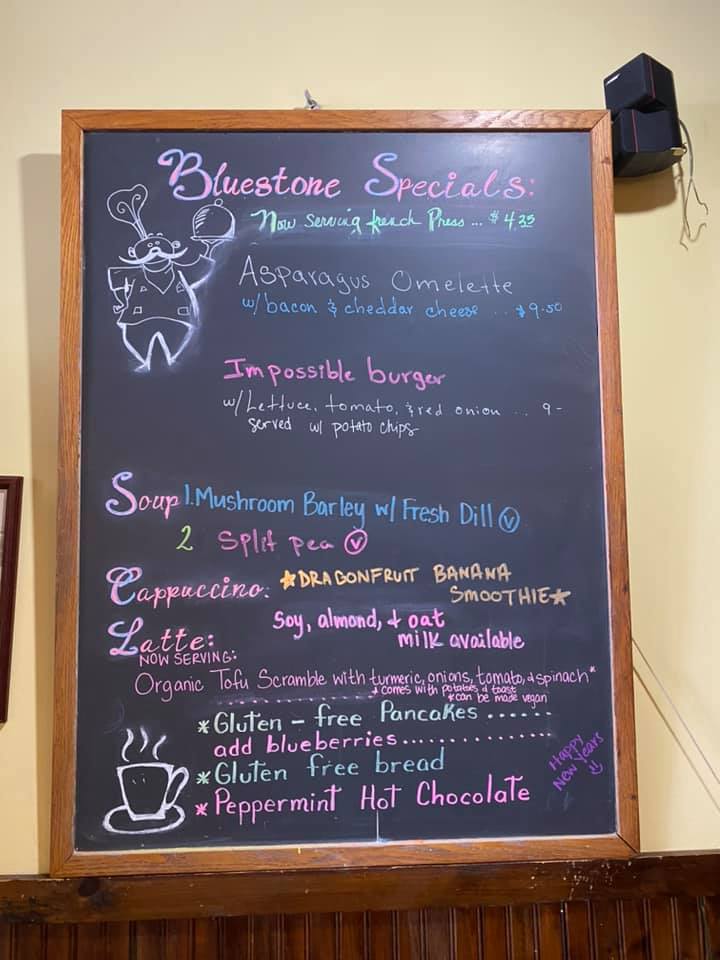 Bluestone Specials:
Now serving french Press ... $4.25
Asparagus Omelette
w/bacon & cheddar cheese ... $9.50
Impossible burger
w/Lettuce, tomato, & red onion ... 9-
served w/ potato chips
Soup 1. Mushroom Barley w/ Fresh Dill Ⓥ
2 Split pea Ⓥ
Cappuccino: *DRAGONFRUIT BANANA
SMOOTHIE*
Latte: Soy, almond, + oat
milk available
NOW SERVING:
Organic Tofu Scramble with turmeric, onions, tomato, & spinach*
* comes with potatoes & toast
*can be made vegan
*Gluten-free Pancakes ......
add blueberries..............
*Gluten free bread
*Peppermint Hot Chocolate
Happy
New Years